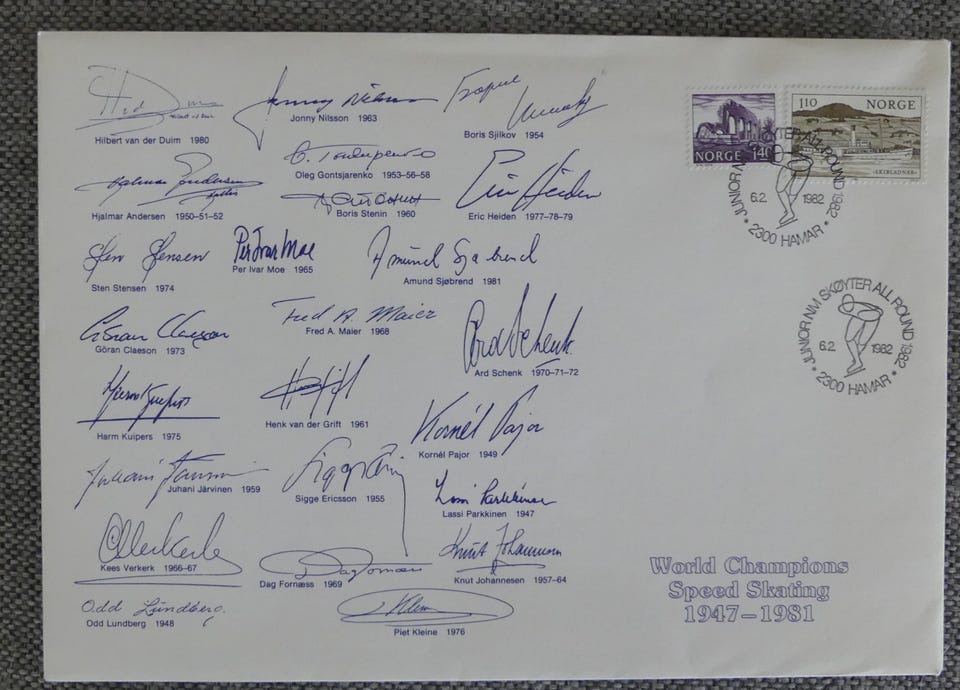 Hilbert van der Duim 1980
Jonny Nilsson
Jonny Nilsson 1963
Boris Sjilkov 1954
Hjalmar Andersen
Hjalmar Andersen 1950-51-52
Oleg Gontsjarenko 1953-56-58
Boris Stenin 1960
Eric Heiden
Eric Heiden 1977-78-79
Sten Stensen
Sten Stensen 1974
Per Ivar Moe
Per Ivar Moe 1965
Amund Sjøbrend
Amund Sjøbrend 1981
Göran Claeson
Göran Claeson 1973
Fred A. Maier
Fred A. Maier 1968
Ard Schenk
Ard Schenk 1970-71-72
Harm Kuipers
Harm Kuipers 1975
Henk van der Grift 1961
Kornél Pajor
Kornél Pajor 1949
Juhani Järvinen 1959
Sigge Ericsson 1955
Lassi Parkkinen
Lassi Parkkinen 1947
Kees Verkerk 1966-67
Dag Fornæss 1969
Knut Johannesen 1957-64
Odd Lundberg
Odd Lundberg 1948
Piet Kleine 1976
NORGE 140
110 NORGE
»SKIBLADNER«
JUNIOR NM SKØYTER ALL ROUND 1982
6.2 1982
2300 HAMAR
JUNIOR NM SKØYTER ALL ROUND 1982
6.2 1982
2300 HAMAR
World Champions
Speed Skating
1947–1981